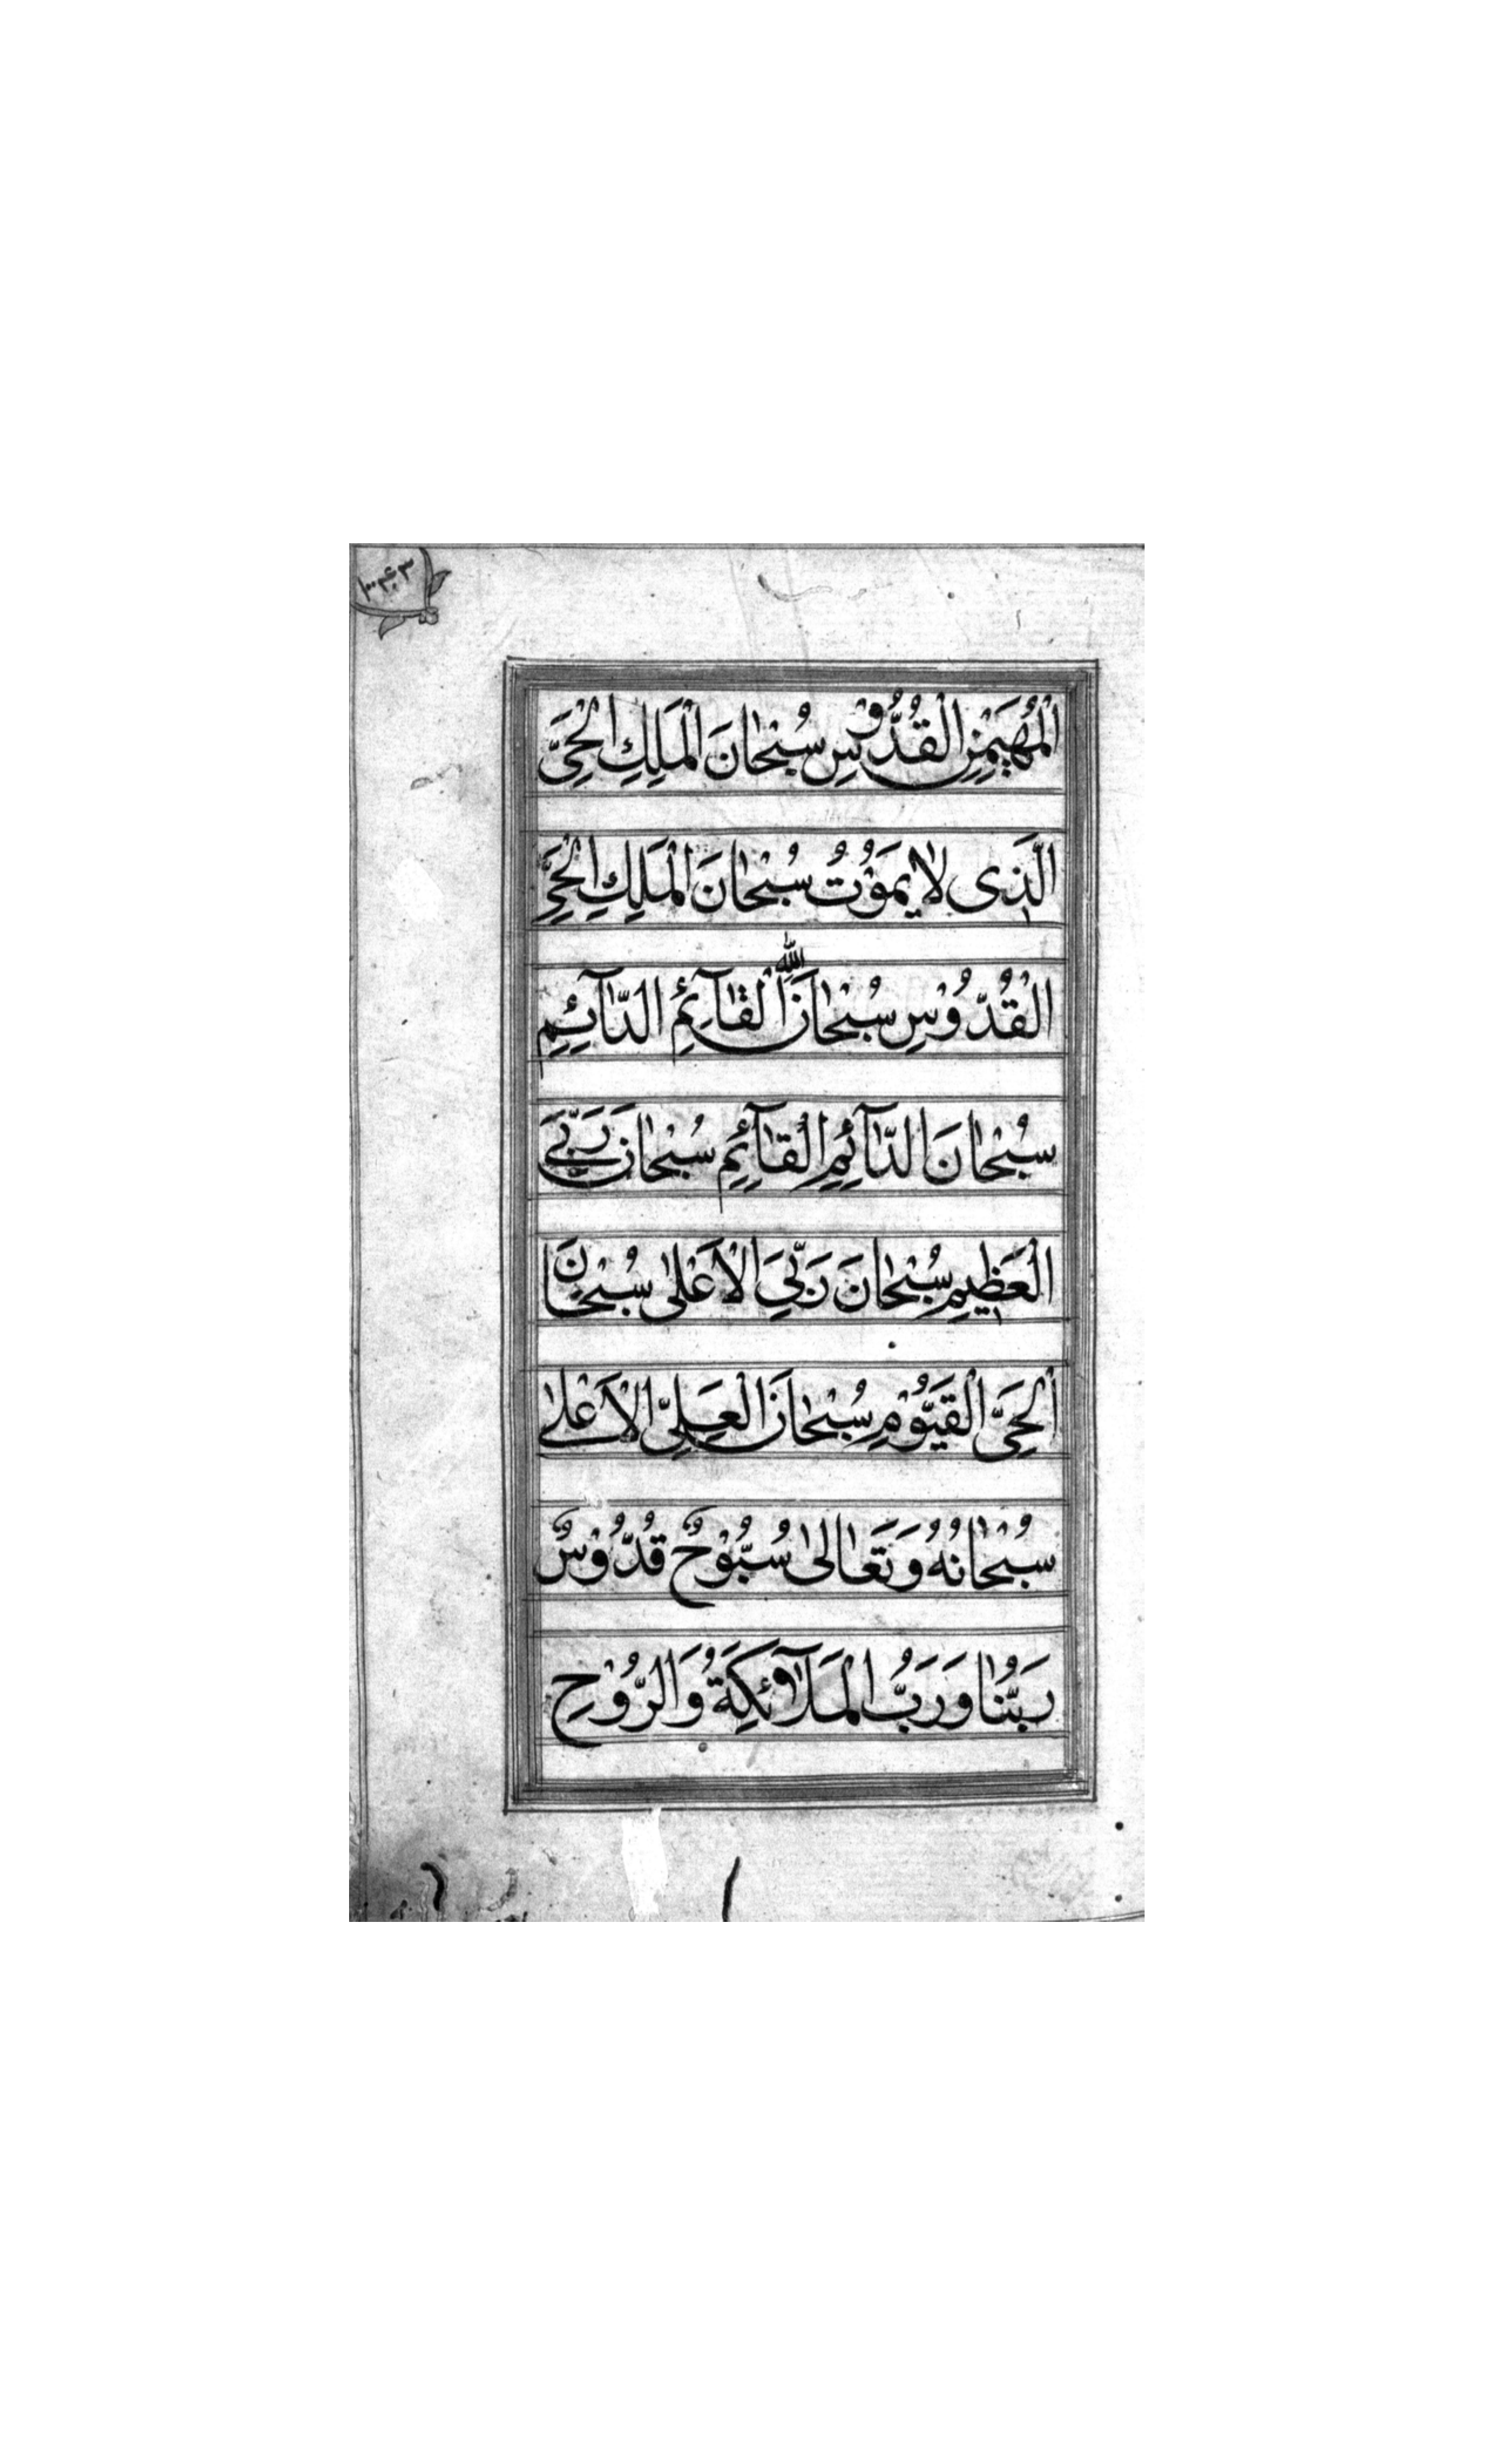 الْمُهَيْمِنِ الْقُدُّوْسِ سُبْحٰانَ الْمَلِكِ الْحَىِّ
الَّذِى لٰا يَمُوْتُ سُبْحٰانَ الْمَلِكِ الْحَىِّ
الْقُدُّوْسِ سُبْحٰانَ الْقٰآئِمِ الدّٰآئِمِ
الله
سُبْحٰانَ الدّٰآئِمِ الْقٰآئِمِ سُبْحٰانَ رَبِّىَ
الْعَظِيمِ سُبْحٰانَ رَبِّىَ الْاَعْلىٰ سُبْحٰانَ
الْحَىِّ الْقَيُّوْمِ سُبْحٰانَ الْعَلِىِّ الْاَعْلىٰ
سُبْحٰانَهُ وَتَعٰالىٰ سُبُّوْحٌ قُدُّوْسٌ
رَبُّنٰا وَرَبُّ الْمَلٰآئِكَةُ وَالرُّوْحِ